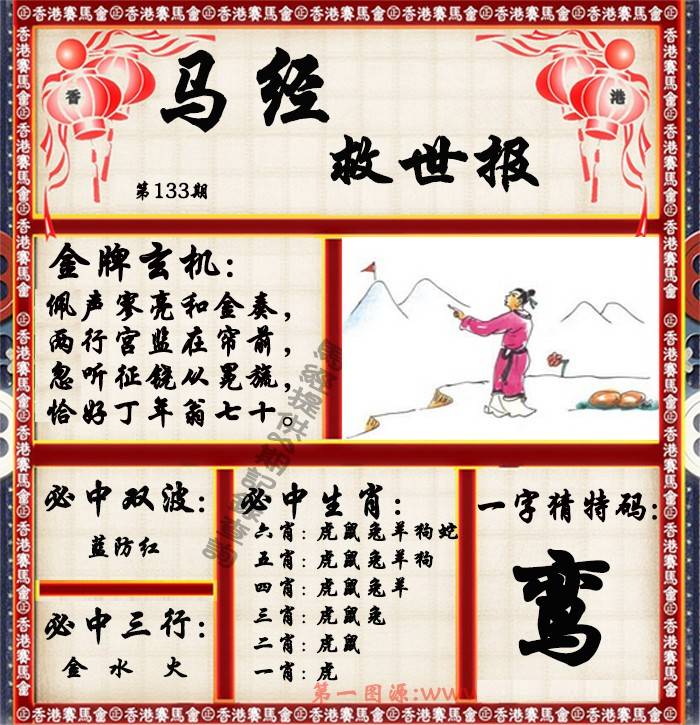 香港賽馬會
香 港
马经
救世报
第133期
金牌玄机:
佩声寥亮和金奏,
两行宫监在帘前,
忽听征铙从冕旒,
恰好丁年翁七十。
必中双波:
蓝防红
必中三行:
金 水 火
必中生肖:
六肖:虎鼠兔羊狗蛇
五肖:虎鼠兔羊狗
四肖:虎鼠兔羊
三肖:虎鼠兔
二肖:虎鼠
一肖:虎
一字猜特码:
鸾
第一图源:www